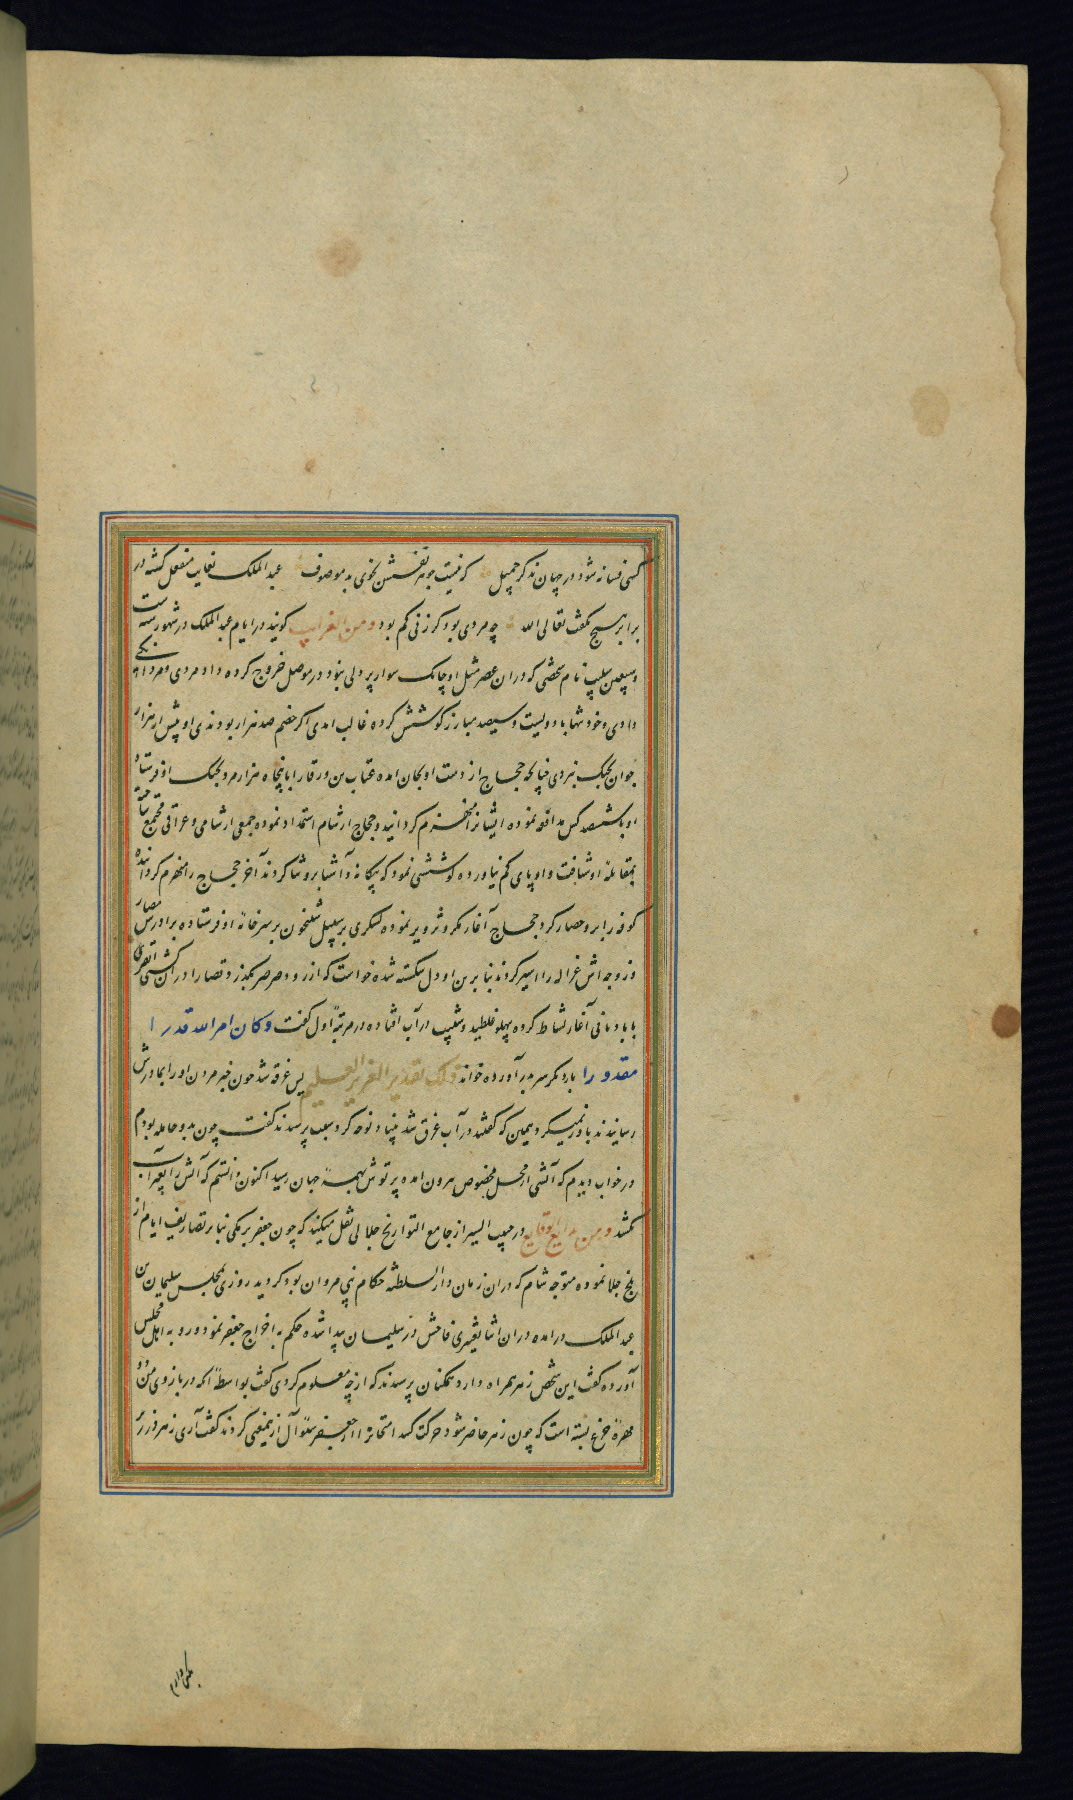 کسی فسانه شود در جهان بذکر جمیل که نیست جوهر نفسش بخوی بد موصوف عبد الملک بغایت منفعل کشته در
برابر هیچ نکفت تعالی الله چه مردی بود کز زنی کم بود ومن الغرایب کویند در ایام عبد الملک در شهور سنه ست
وسبعین شبیب نام شخصی که در ان عصر مثل او چابک سوار پر دلی نبود در موصل خروج کرده داد مردی ومردانکی
دادی وخود تنها با دویست وسیصد مبارز کوشش کرده غالب امدی اکر خصم صد هزار بودندی او پیش از هزار
جوان بجنک نبردی چنانچه حجاج از دست او بجان امده عتاب بن ورقا را با پنجاه هزار مرد بجنک او فرستاد
او با ششصد کس مدافعه نموده ایشانرا منهزم کردانید وحجاج از شام استمداد نموده جمعی از شامی وعراقی مجتمع ساخته
بمقابله او شتافت واو پای کم نیاورده کوششی نمود که بیکانه وآشنا برو ثنا کردند آخر حجاج را منهزم کردانیده
کوفه را برو حصار کرد حجاج آغاز مکر وتزویر نموده لشکری بر سبیل شبیخون بر سر خانه او فرستاده برادرش مصاد
وزوجه اش غزاله را اسیر کردند بنابرین او دل شکسته شده خواست که از رود صرصر بکذرد قضا را در ان کشتی
با مادیانی آغاز نشاط کرده پهلو غلطید وشبیب در آب افتاده در مرتبه اول کفت وکان امر الله قدرا
مقدورا بار دیکر سر بر آورده خواند ذلک تقدیر العزیز العلیم پس غرقه شد چون خبر مردن او را بمادرش
رسانیدند باور نمیکرد همین که کفتند در آب غرق شد بنیاد نوحه کرد سبب پرسیدند کفت چون بدو حامله بودم
در خواب دیدم که آتشی از محل مخصوص بیرون امده پرتوش بهمه جهان رسید اکنون دانستم که آتش را بغیر آب
نکشد ومن بدایع الوقایع در حبیب السیر از جامع التواریخ جلالی نقل میکنند که چون جعفر برمکی بنابر تصاریف ایام از
بلخ جلا نموده متوجه شام که دران زمان دار السلطنه حکام بنی مروان بود کردید روزی بمجلس سلیمان بن
عبد الملک در امده در ان اثنا تغییری فاحش در سلیمان پیدا شده حکم به اخراج جعفر نمود ورو به اهل مجلس
آورده کفت این شخص زهر همراه دارد همکنان پرسیدند که از چه معلوم کردی کفت بواسطه انکه در بازوی من دو
مهره جزع بسته است که چون زهر حاضر شود حرکت کند امتحانرا از جعفر سئوال از ینمعنی کردند کفت آری زهر در زیر